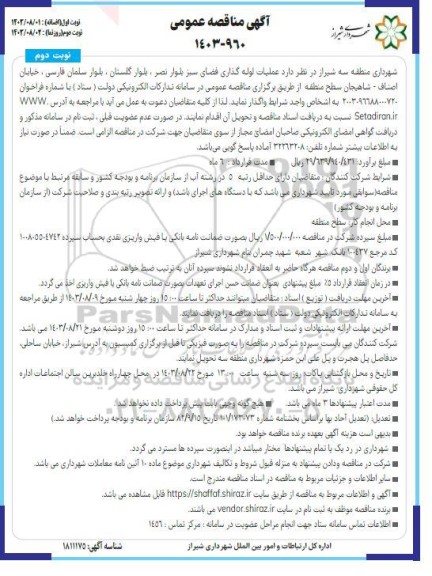 آگهی مناقصه عمومی
۱۴۰۳-۹۶۰
نوبت اول(اضافه) : ۱۴۰۳/۰۸/۰۱
نوبت دوم(روزنما) : ۱۴۰۳/۰۸/۰۲
شهرداری شیراز
نوبت دوم
شهرداری منطقه سه شیراز در نظر دارد عملیات لوله گذاری فضای سبز بلوار نصر ، بلوار گلستان ، بلوار سلمان فارسی ، خیابان
اصناف - شاهیجان سطح منطقه از طریق برگزاری مناقصه عمومی در سامانه تدارکات الکترونیکی دولت ( ستاد ) با شماره فراخوان
۲۰۰۳۰۹۶۶۸۸۰۰۰۷۲۰ به اشخاص واجد شرایط واگذار نماید. لذا از کلیه متقاضیان دعوت به عمل می آید با مراجعه به آدرس WWW.
Setadiran.ir نسبت به دریافت اسناد مناقصه و تحویل آن اقدام نمایند. در صورت عدم عضویت قبلی ، ثبت نام در سامانه مذکور و
دریافت گواهی امضای الکترونیکی صاحبان امضای مجاز از سوی متقاضیان جهت شرکت در مناقصه الزامی است. ضمناً در صورت نیاز
به اطلاعات بیشتر شماره تلفن: ۳۲۲۶۳۲۰۸ آماده پاسخ گویی می‌باشد.
مبلغ برآورد: ۲۹/۶۳۹/۱۴۰/۴۳۱ ریال مدت قرارداد : ۶ ماه
شرایط شرکت کنندگان : متقاضیان دارای حداقل رتبه ۵ در رشته آب از سازمان برنامه و بودجه کشور و سابقه مرتبط با موضوع
مناقصه(سوابقی مورد تأیید شهرداری می باشد که با دستگاه های اجرای باشد) و ارائه تصویر رتبه بندی و صلاحیت شرکت (از سازمان
برنامه و بودجه کشور)
محل انجام کار: سطح منطقه
مبلغ سپرده شرکت در مناقصه ۱/۵۰۰/۰۰۰/۰۰۰ ریال بصورت ضمانت نامه بانکی یا فیش واریزی نقدی بحساب سپرده ۱۰۰۸۰۵۵۰۴۷۴۲
کد مرجع ۱۰۰۴۳۷ بانک شهر شعبه شهید چمران بنام شهرداری شیراز
برندگان اول و دوم مناقصه هرگاه حاضر به انعقاد قرارداد نشوند سپرده آنان به ترتیب ضبط خواهد شد.
در زمان انعقاد قرارداد ۵٪ مبلغ پیشنهادی بعنوان ضمانت حسن اجرای تعهدات بصورت ضمانت نامه بانکی یا فیش واریزی اخذ می گردد.
آخرین مهلت دریافت ( توزیع ) اسناد : متقاضیان میتوانند حداکثر تا ساعت ۱۵:۰۰ روز چهار شنبه مورخ ۱۴۰۳/۰۸/۰۹ از طریق مراجعه
به سامانه تدارکات الکترونیکی دولت ( ستاد ) اسناد مناقصه را دریافت نمایند.
آخرین مهلت ارائه پیشنهادات و ثبت اسناد و مدارک در سامانه حداکثر تا ساعت ۱۵:۰۰ روز دوشنبه مورخ ۱۴۰۳/۰۸/۲۱ می باشد.
شرکت کنندگان می بایست سپرده شرکت در مناقصه را به صورت فیزیکی تا قبل از برگزاری کمیسیون به آدرس شیراز، خیابان ساحلی،
حدفاصل پل هجرت و پل علی ابن حمزه شهرداری منطقه سه تحویل نمایند.
تاریخ و محل بازگشایی پاکات روز سه شنبه ساعت ۱۳:۰۰ مورخ ۱۴۰۳/۰۸/۲۲ در محل چهارراه خلدبرین سالن اجتماعات اداره
کل حقوقی شهرداری شیراز می باشد.
مدت اعتبار پیشنهادها ۳ ماه می باشد. هیچ گونه وجهی بابت پیش پرداخت داده نخواهد شد.
تعدیل: (تعدیل آحاد بها براساس بخشنامه شماره ۱۰۱/۱۷۳۰۷۳ تاریخ ۸۲/۹/۱۵ سازمان برنامه و بودجه پرداخت خواهد شد.)
بدیهی است هزینه آگهی بعهده برنده مناقصه خواهد بود.
شهرداری در رد یک یا تمام پیشنهادها مختار میباشد در اینصورت سپرده ها مسترد می گردد.
شرکت در مناقصه ودادن پیشنهاد به منزله قبول شروط و تکالیف شهرداری موضوع ماده ۱۰ آئین نامه معاملات شهرداری می باشد.
سایر اطلاعات و جزئیات مربوط به مناقصه در اسناد مناقصه مندرج است.
آگهی و اطلاعات مربوط به مناقصه از طریق سایت https://shaffaf.shiraz.ir قابل مشاهده می باشد.
برنده مناقصه موظف به ثبت نام در سایت vendor.shiraz.ir می باشد.
اطلاعات تماس سامانه ستاد جهت انجام مراحل عضویت در سامانه : مرکز تماس : ۱۴۵۶
اداره کل ارتباطات و امور بین الملل شهرداری شیراز
شناسه آگهی: ۱۸۱۱۱۷۵